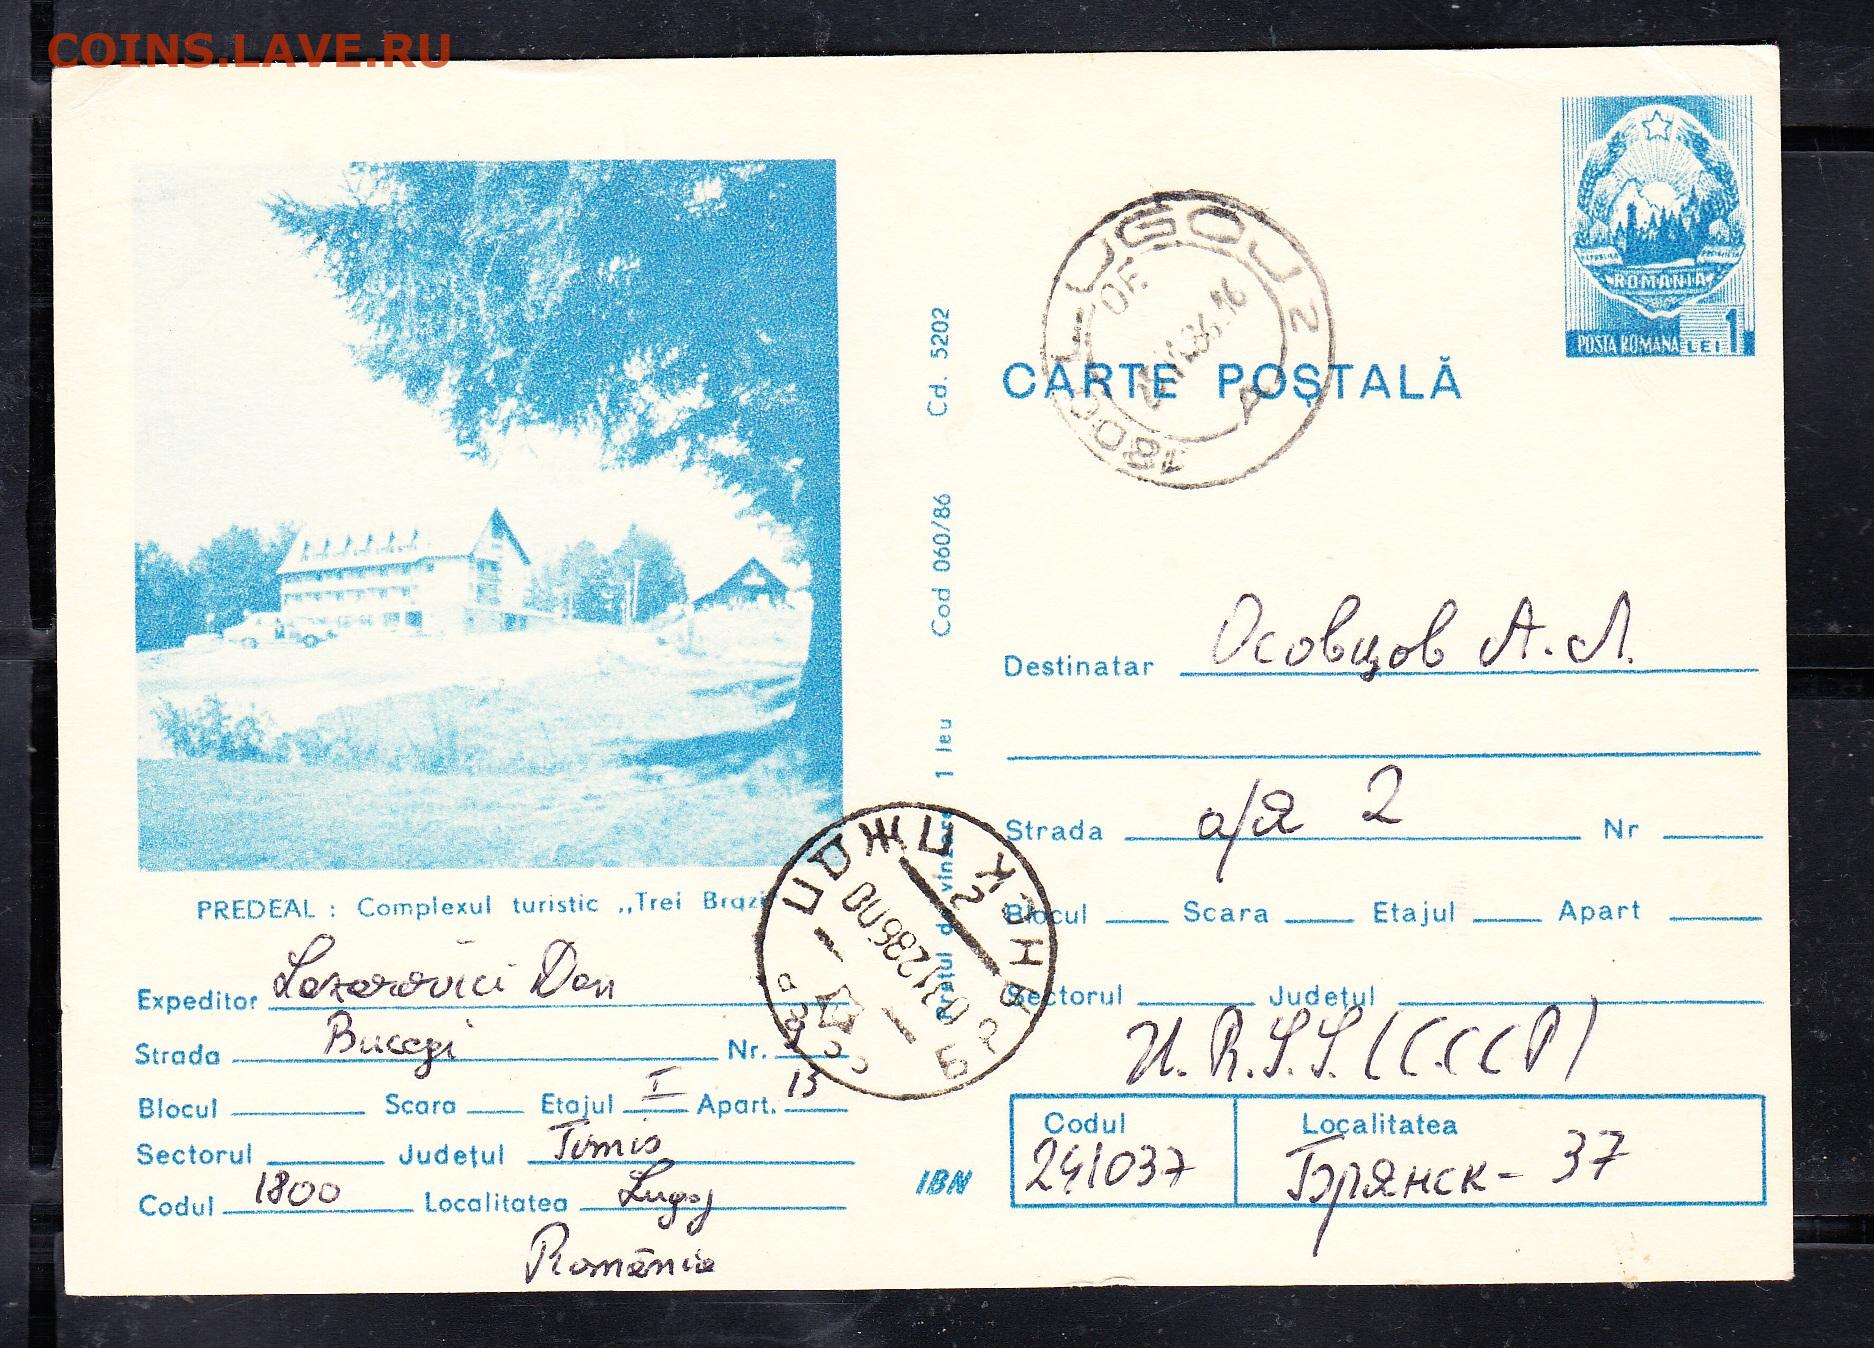 COINS.LAVE.RU
ROMANIA
POSTA ROMANA LEI 1
LUGOJ 2
OF.
A
CARTE POȘTALĂ
Cd. 5202
Cod 060/86
1 leu
PREDEAL : Complexul turistic „Trei Brazi
Destinatar Осовцов А.Л.
Strada а/я 2 Nr
Blocul Scara Etajul Apart
Sectorul Județul
U.R.S.S. (СССР)
Codul Localitatea
241037 Брянск-37
Expeditor Lazarovici Dan
Strada Bucegi Nr.
Blocul Scara Etajul I Apart. 13
Sectorul Județul Timis
Codul 1800 Localitatea Lugoj
România
IBN
БРЯНСК 2 ПЖДП
СССР